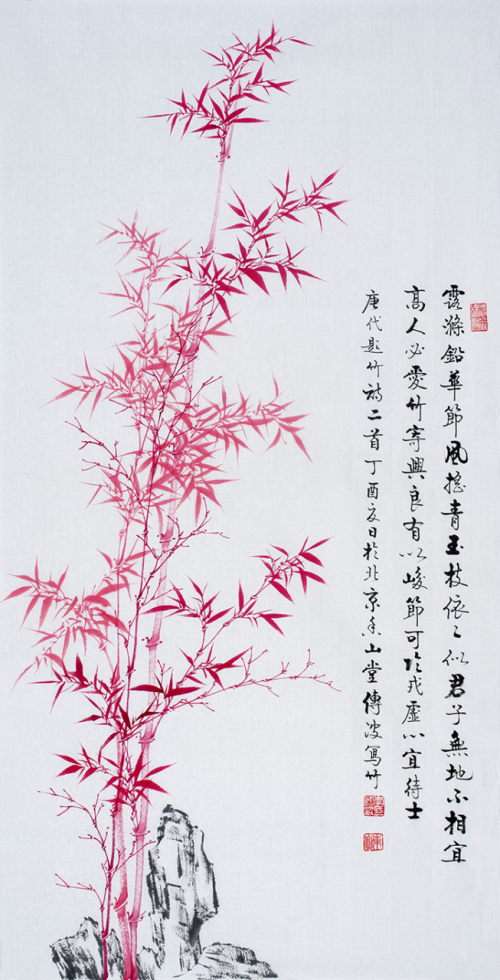 露滌鉛華節風搖青玉枝依〻似君子無地不相宜
高人必愛竹寄興良有以峻節可臨戎虛心宜待士
唐代題竹詩二首丁酉夏日於北京香山堂傅波寫竹